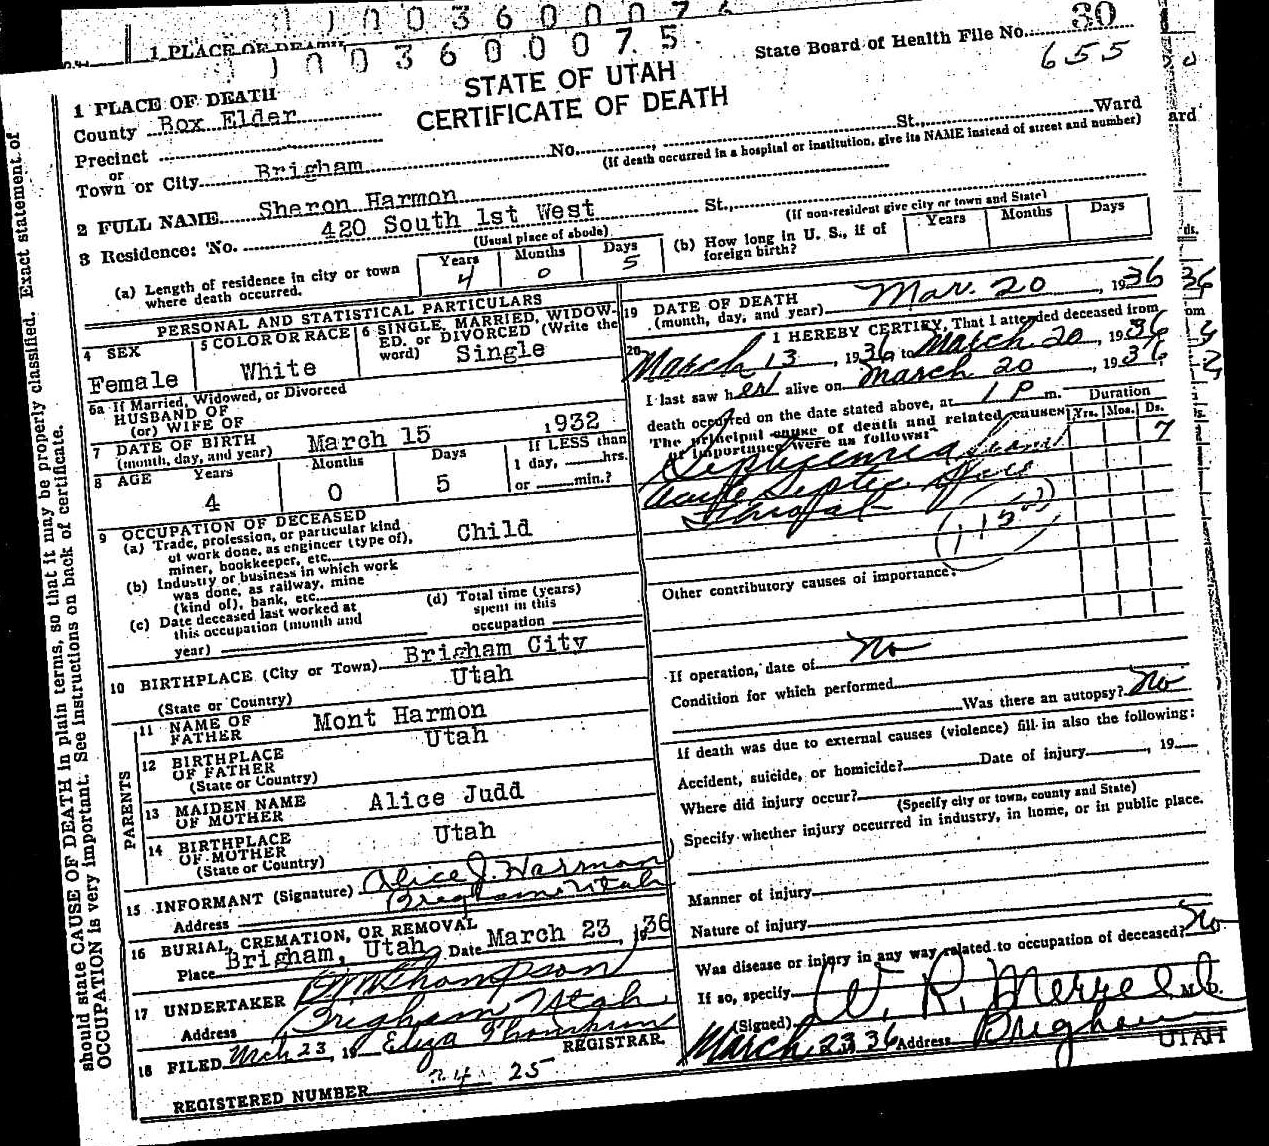 1 PLACE OF DEATH
3600076
3600075
State Board of Health File No. 30
655
STATE OF UTAH
CERTIFICATE OF DEATH
1 PLACE OF DEATH
County Box Elder
Precinct
or
Town or City Brigham No. , St. Ward
(If death occurred in a hospital or institution, give its NAME instead of street and number)
2 FULL NAME Sharon Harmon
3 Residence: No. 420 South 1st West St.,
(Usual place of abode) (If non-resident give city or town and State)
(a) Length of residence in city or town where death occurred. Years 4 Months 0 Days 5
(b) How long in U. S., if of foreign birth? Years Months Days
PERSONAL AND STATISTICAL PARTICULARS
4 SEX Female
5 COLOR OR RACE White
6 SINGLE, MARRIED, WIDOWED, or DIVORCED (Write the word) Single
6a If Married, Widowed, or Divorced
HUSBAND OF
(or) WIFE OF
7 DATE OF BIRTH
(month, day, and year) March 15 1932
8 AGE Years 4 Months 0 Days 5
If LESS than
1 day, hrs.
or min.?
9 OCCUPATION OF DECEASED
(a) Trade, profession, or particular kind
of work done, as engineer (type of),
miner, bookkeeper, etc. Child
(b) Industry or business in which work
was done, as railway, mine
(kind of), bank, etc.
(c) Date deceased last worked at
this occupation (month and
year)
(d) Total time (years)
spent in this
occupation
10 BIRTHPLACE (City or Town) Brigham City
(State or Country) Utah
PARENTS
11 NAME OF FATHER Mont Harmon
12 BIRTHPLACE OF FATHER Utah
(State or Country)
13 MAIDEN NAME OF MOTHER Alice Judd
14 BIRTHPLACE OF MOTHER Utah
(State or Country)
15 INFORMANT (Signature) Alice J. Harmon
Address Brigham Utah
16 BURIAL, CREMATION, OR REMOVAL
Place Brigham, Utah Date March 23, 1936
17 UNDERTAKER Thompson
Address Brigham, Utah
18 FILED Mch 23, 19 Eliza Thompson REGISTRAR.
REGISTERED NUMBER 24 25
19 DATE OF DEATH
(month, day, and year) Mar. 20, 1936
20 I HEREBY CERTIFY, That I attended deceased from
March 13, 1936 to March 20, 1936
I last saw her alive on March 20 1936
death occurred on the date stated above, at 1 P m.
The principal cause of death and related causes
of importance were as follows: Duration Yrs. Mos. Ds.
Septicemia from 7
Acute Septic Sore
Throat
(115)
Other contributory causes of importance:
If operation, date of No
Condition for which performed
Was there an autopsy? No
If death was due to external causes (violence) fill in also the following:
Accident, suicide, or homicide? Date of injury , 19
Where did injury occur?
(Specify city or town, county and State)
Specify whether injury occurred in industry, in home, or in public place.
Manner of injury
Nature of injury
Was disease or injury in any way related to occupation of deceased? No
If so, specify
(Signed) W. R. Merrell M. D.
March 23 36 Address Brigham UTAH
should state CAUSE OF DEATH in plain terms, so that it may be properly classified. Exact statement of
OCCUPATION is very important. See instructions on back of certificate.